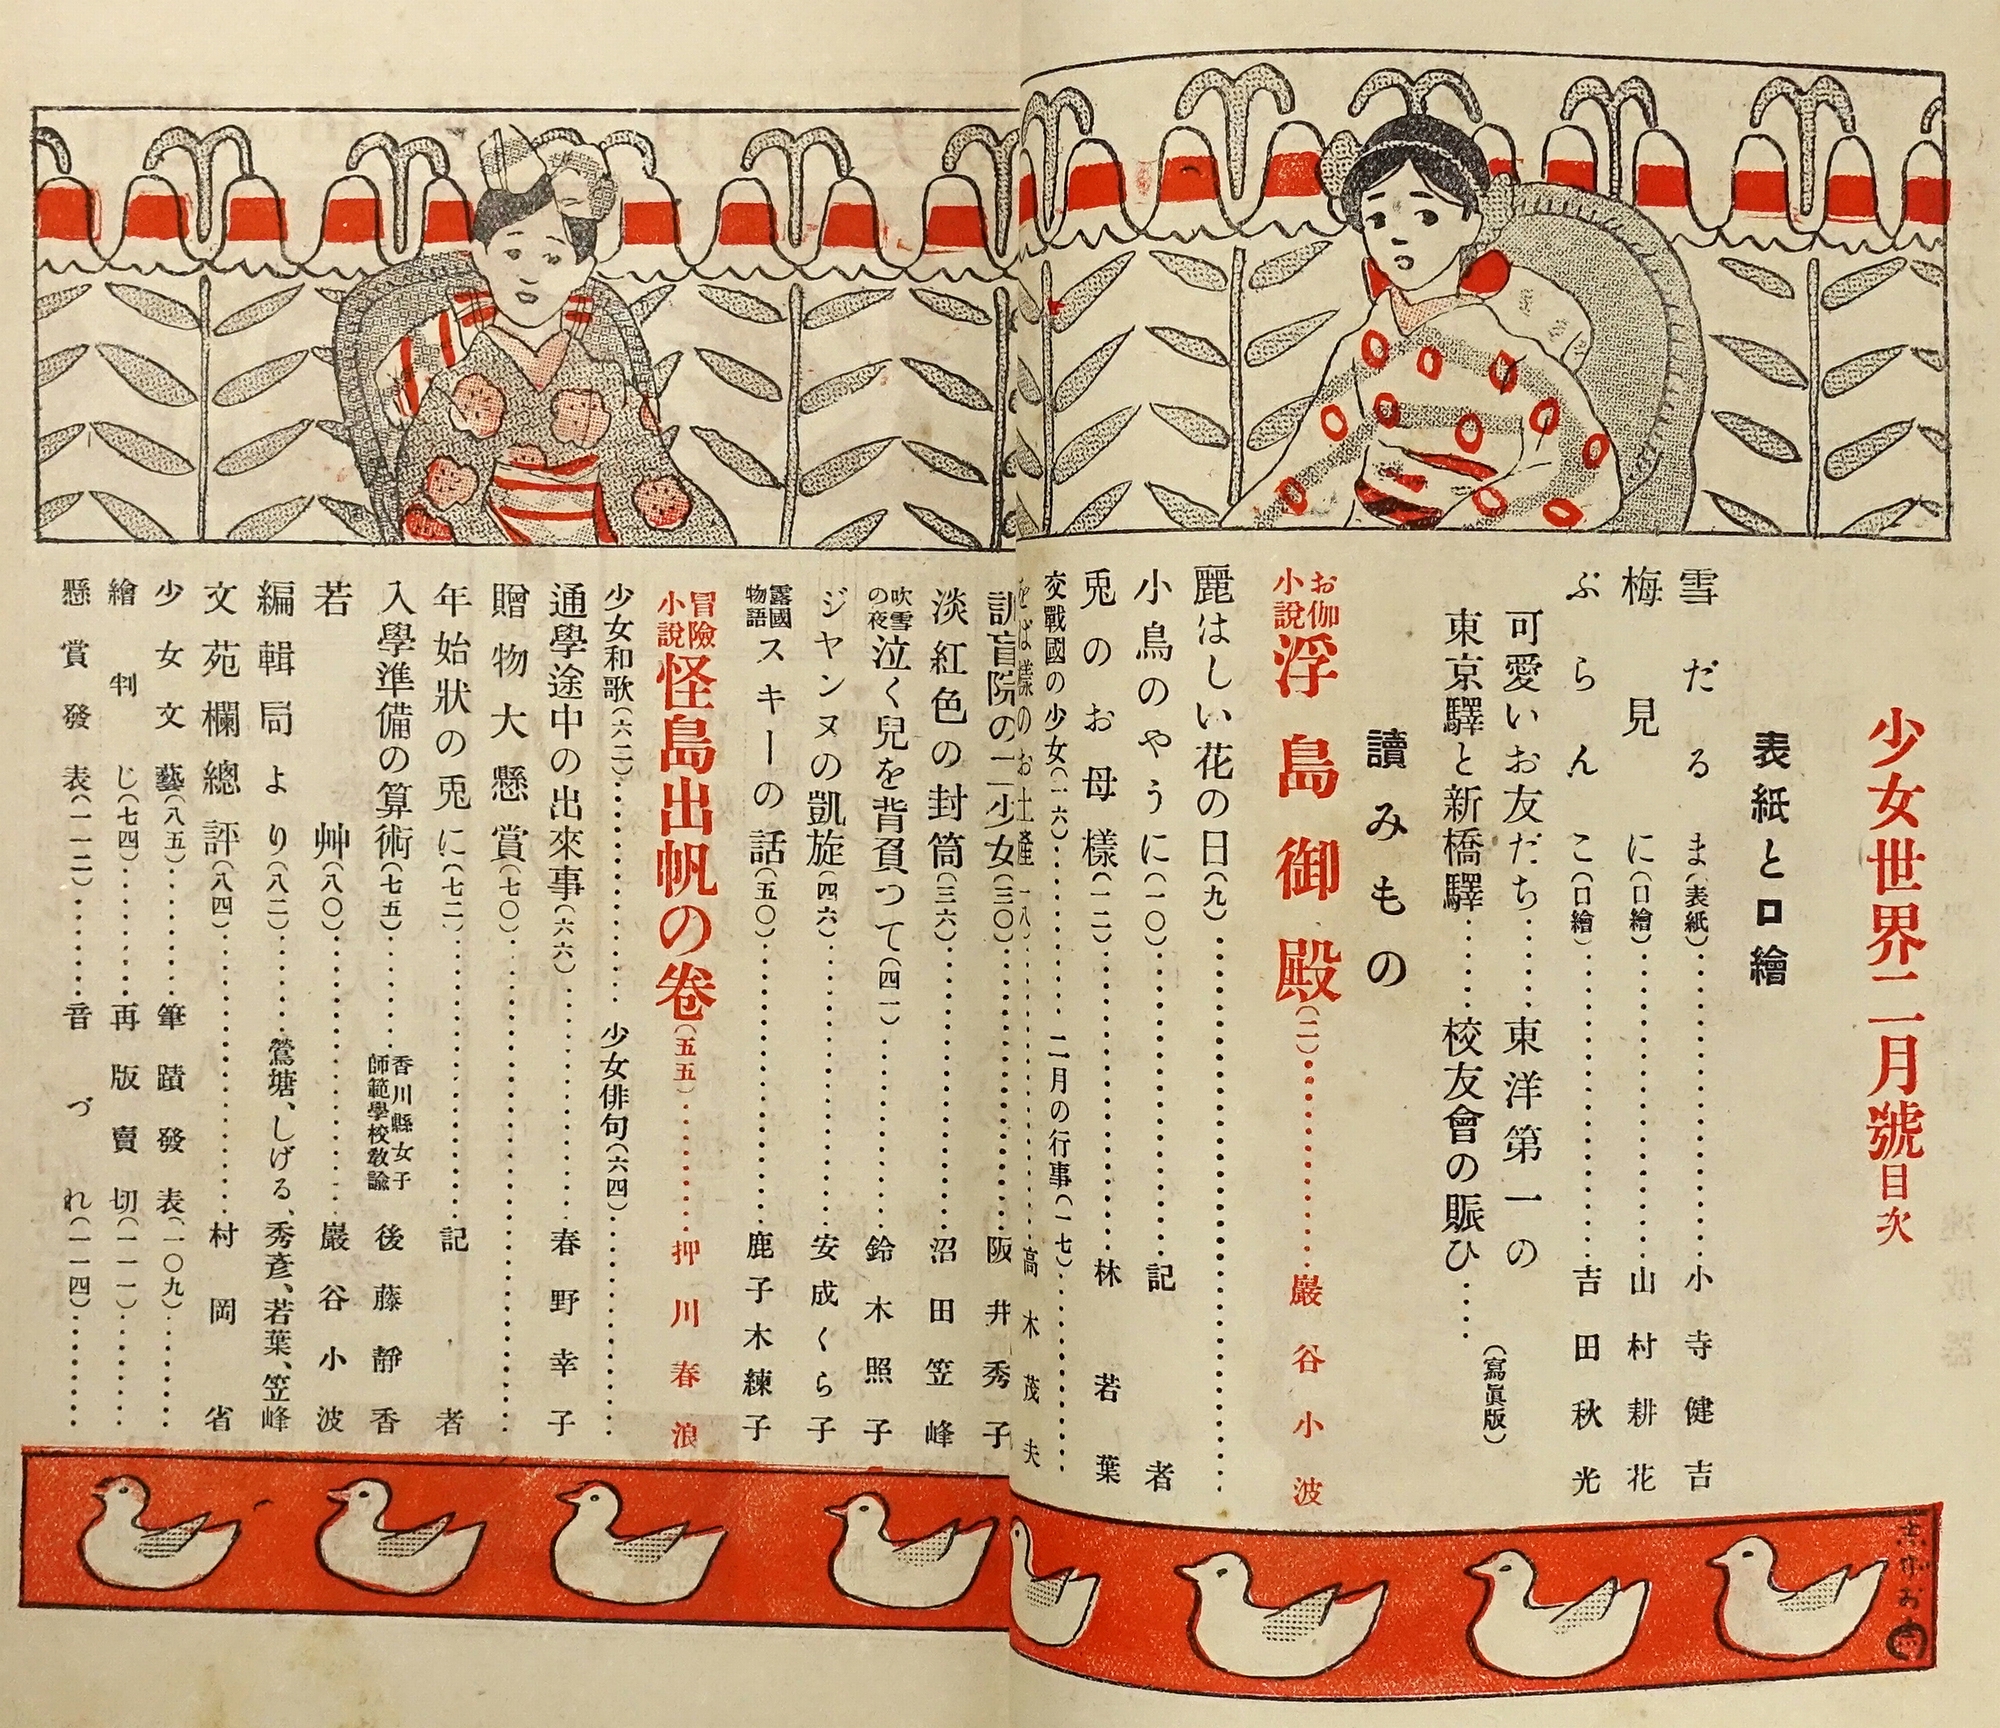 少女世界二月號目次
表紙と口繪
雪だるま(表紙)……小寺健吉
梅見に(口繪)……山村耕花
ぶらんこ(口繪)……吉田秋光
可愛いお友だち……東洋第一の
東京驛と新橋驛……校友會の賑ひ……(寫眞版)
讀みもの
お伽小說 浮島御殿(二)……巖谷小波
麗はしい花の日(九)……
小鳥のやうに(一〇)……記者
兎のお母樣(一二)……林若葉
交戰國の少女(一六)……二月の行事(一七)……
をば樣のお土產(一八)……高木茂夫
訓盲院の二少女(三〇)……阪井秀子
淡紅色の封筒(三六)……沼田笠峰
吹雪の夜 泣く兒を背負つて(四一)……鈴木照子
ジヤンヌの凱旋(四六)……安成くら子
露國物語 スキーの話(五〇)……鹿子木練子
冒險小說 怪島出帆の卷(五五)……押川春浪
少女和歌(六二)……少女俳句(六四)……
通學途中の出來事(六六)……春野幸子
贈物大懸賞(七〇)……
年始狀の兎に(七二)……記者
入學準備の算術(七五)……香川縣女子師範學校敎諭 後藤靜香
若艸(八〇)……巖谷小波
編輯局より(八二)……鶯塘、しげる、秀彥、若葉、笠峰
文苑欄總評(八四)……村岡省
少女文藝(八五)……筆蹟發表(一〇九)……
繪判じ(七四)……再版賣切(一一一)……
懸賞發表(一一二)……音づれ(一一四)……